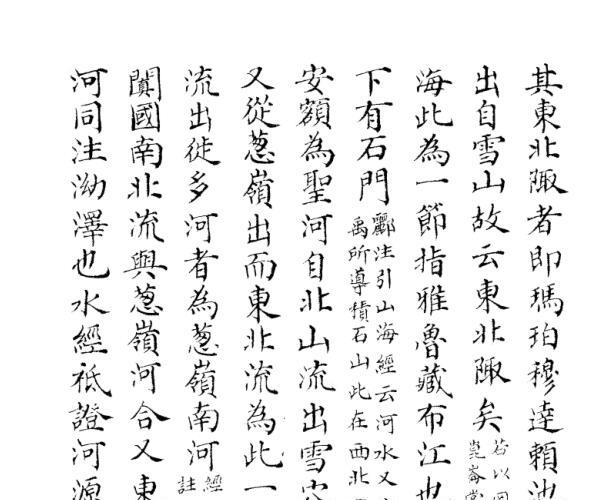 其東北陬者即瑪珀穆達賴池
出自雪山故云東北陬矣若以回崑崙當
海此為一節指雅魯藏布江也
下有石門酈注引山海經云河水又禹所導積石山此在西北
安額為聖河自北山流出雪穴
又從葱嶺出而東北流為此一
流出徙多河者為葱嶺南河經註
闐國南北流與葱嶺河合又東
河同注泑澤也水經祗證河源